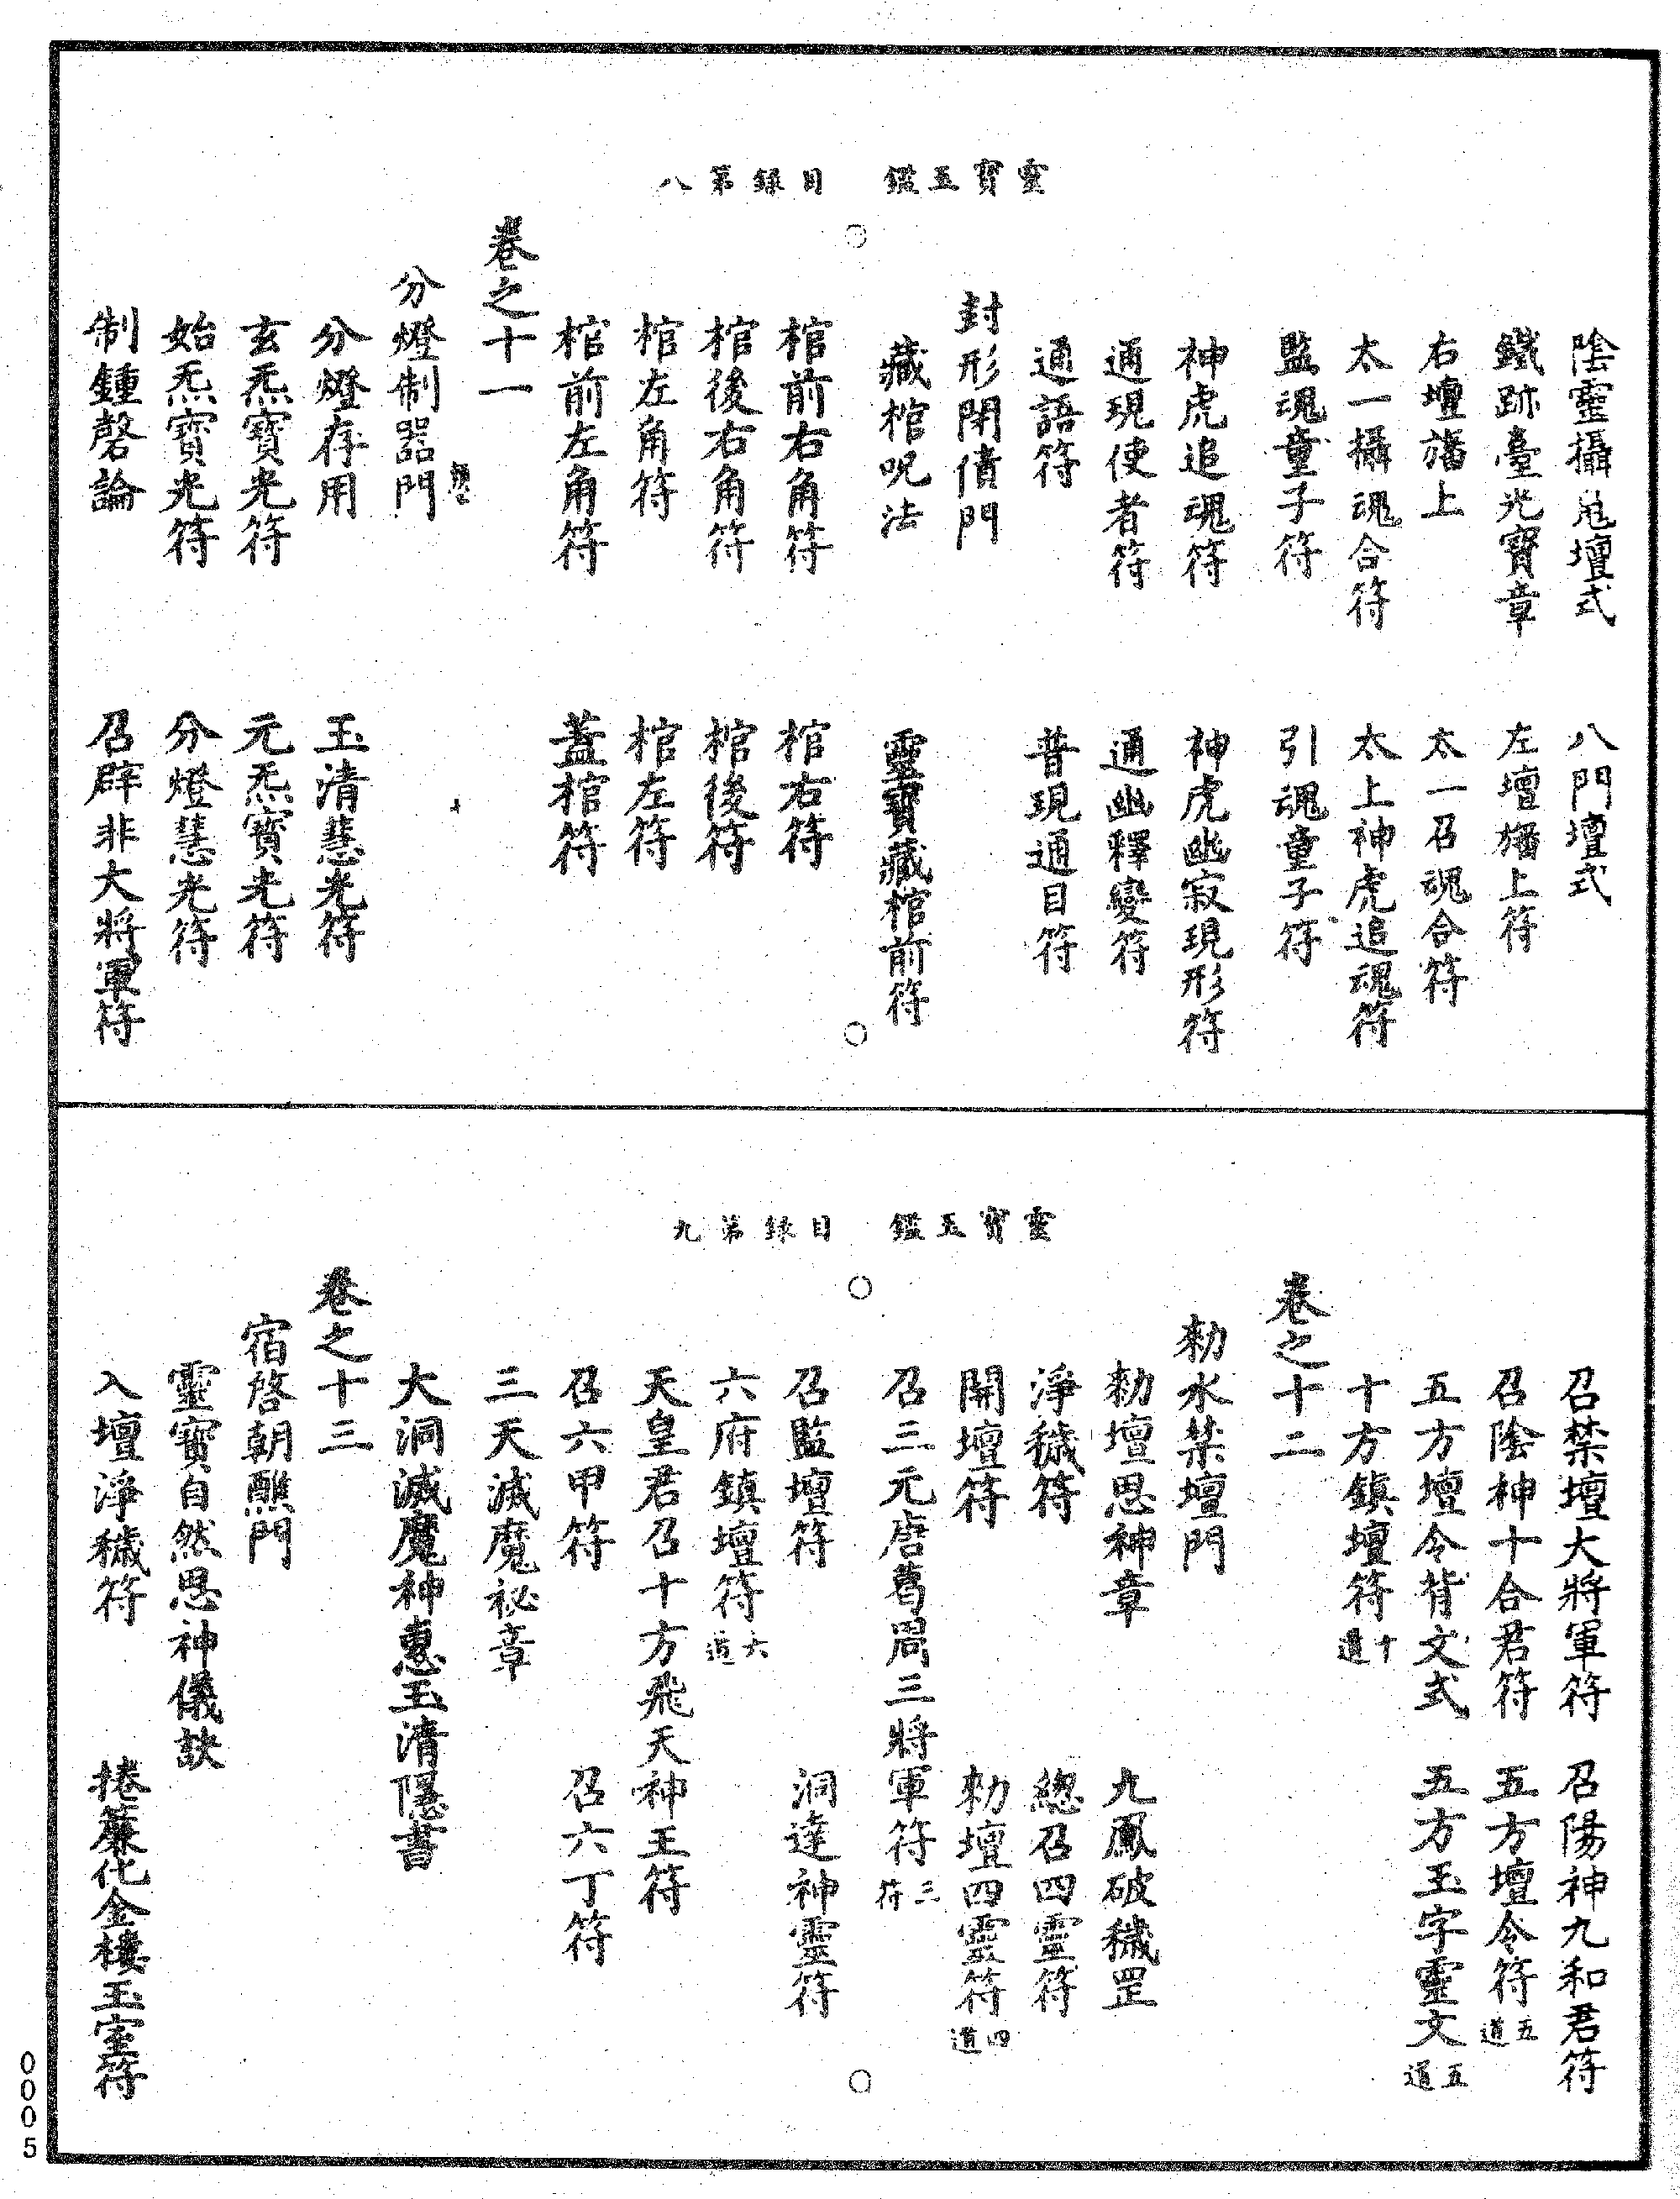 靈寶玉鑑　目錄第八
陰靈攝召壇式　八門壇式
鐵跡臺光寶章　左壇旛上符
右壇旛上　太一召魂合符
太一攝魂合符　太上神虎追魂符
監魂童子符　引魂童子符
神虎追魂符　神虎幽寂現形符
通現使者符　通幽釋變符
通語符　普現通目符
封形閉債門
藏棺呪法　靈寶藏棺前符
棺前右角符　棺右符
棺後右角符　棺後符
棺左角符　棺左符
棺前左角符　蓋棺符
卷之十一
分燈制器門
分燈存用　玉清慧光符
玄炁寶光符　元炁寶光符
始炁寶光符　分燈慧光符
制鍾磬論　召辟非大將軍符
靈寶玉鑑　目錄第九
召禁壇大將軍符　召陽神九和君符
召陰神十合君符　五方壇令符五道
五方壇令背文式　五方玉字靈文五道
十方鎮壇符十道
卷之十二
勑水禁壇門
勑壇思神章　九鳳破穢罡
淨穢符　總召四靈符
開壇符　勑壇四靈符四道
召三元唐葛周三將軍符三符
召監壇符　洞達神靈符
六府鎮壇符六道
天皇君召十方飛天神王符
召六甲符　召六丁符
三天滅魔祕章
大洞滅魔神慧玉清隱書
卷之十三
宿啓朝醮門
靈寶自然思神儀訣
入壇淨穢符　捲簾化金樓玉室符
0005